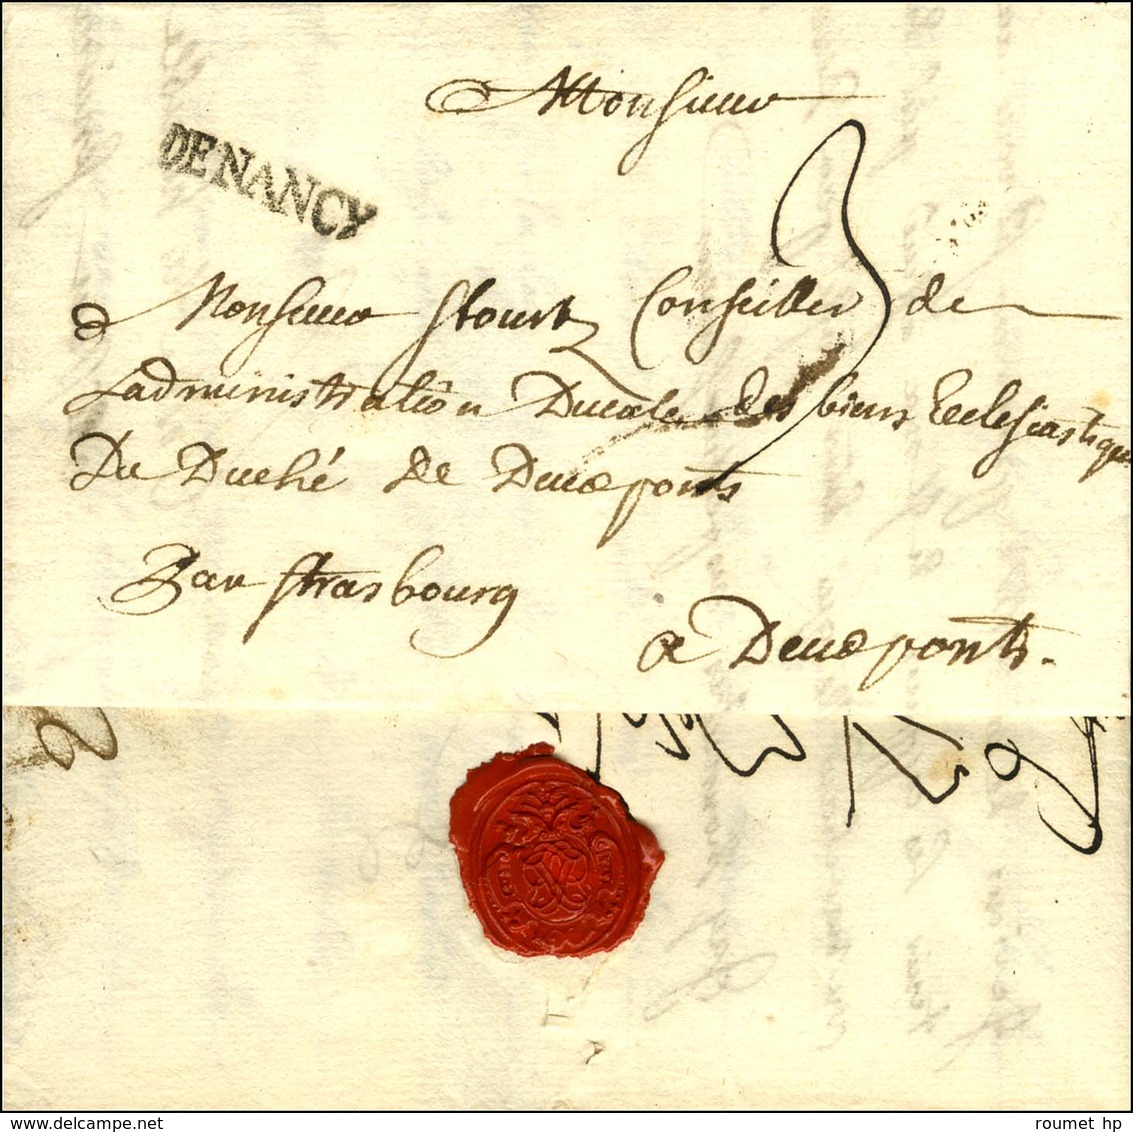 Monsieur
DE NANCY
3
Monsieur Stourtz Conseiller de
Ladministration Ducale des biens Ecclesiastiques
Du Duché de Deuxponts
Par Strasbourg
a Deuxponts.
roumet hp